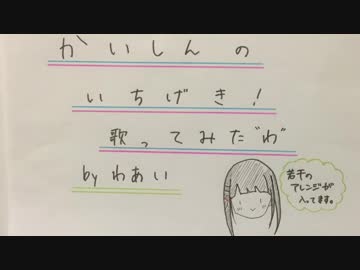 かいしんの
いちげき!
歌ってみた"わ"
by わあい
若干の
アレンジが
入ってます。